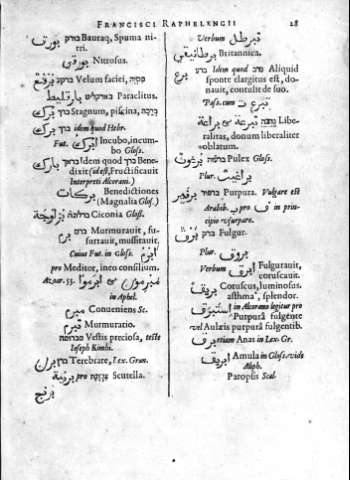 FRANCISCI RAPHELENGII 28
بورق בורק Bauraq, Spuma ni-
tri.
بورقي Nitrosus.
برقع ברקע Velum faciei, מסוה
بارقليط בארקליט Paraclitus.
بركة ברכה Stagnum, piscina, בריכה
برك ברך idem quod Hebr.
Fut. ابرك Incubo, incum-
bo Gloss.
بارك בארך Idem quod ברך Bene-
dixit (id est, Fructificauit
Interpreti Alcorani.)
بركات Benedictiones
(Magnalia Glos.)
Ciconia Gloss.
برم ברם Murmurauit, su-
surrauit, mussitauit,
Cuius Fut. in Gloss. ابرم
pro Meditor, ineo consilium.
Azoar. 53. مبرمون & ابرموا
in Aphel.
مبرم Conueniens Sc.
Murmuratio.
Vestis preciosa, teste
Ioseph Kimhi.
Terebrate, Lex. Gran.
برنية pro Scutella.
برنج
Verbum
برطانيقي Britannica.
برع ברע Idem quod נדב Aliquid
sponte elargitus est, do-
nauit, contulit de suo.
Pass. cum ت تبرعت
براعة & تبرعة נדבה Libe-
ralitas, donum liberaliter
oblatum.
برغوث ברגות Pulex Gloss.
Plur. براغيث
برفير ברפיר Purpura. Vulgare est
Arabib. پ pro ف in prin-
cipio vsurpare.
برق ברק Fulgur.
Plur. بروق
Verbum ابرق Fulgurauit,
coruscauit.
بريق Coruscus, luminosus.
asthma, splendor.
استبرق in Alcorano legitur pro
Purpurâ fulgente
vel Aulæis purpurâ fulgentib.
برق etiam Anas in Lex. Gr.
ابريق Amula in Gloss. vide
Aliph.
Paropsis Scal.